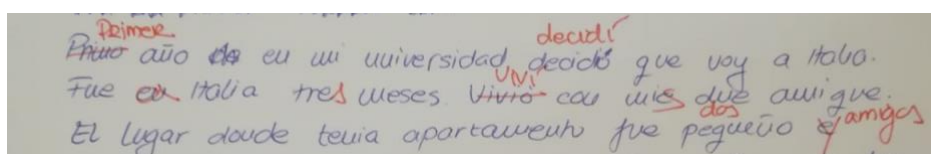 Primer decidí
Primo año de en mi universidad decidió que voy a Italia.
Viví
Fue en Italia tres meses. Vivió con mis due amigue.
dos amigos
El lugar donde tenia apartamento fue pequeño y